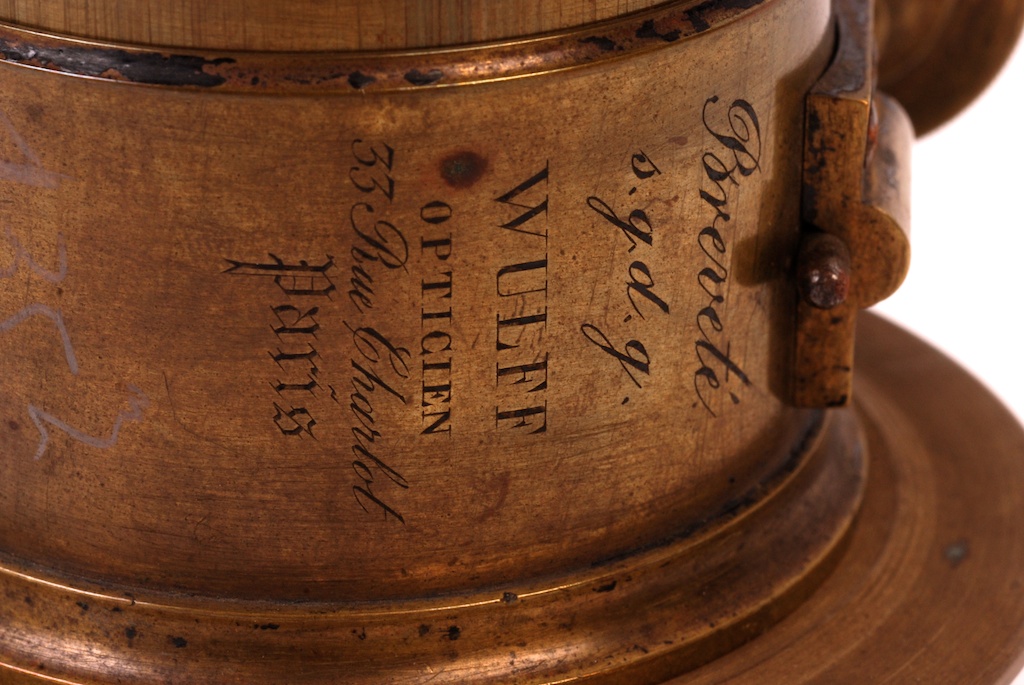 Breveté
s.g.d.g.
WULFF
OPTICIEN
33 Rue Charlot
Paris